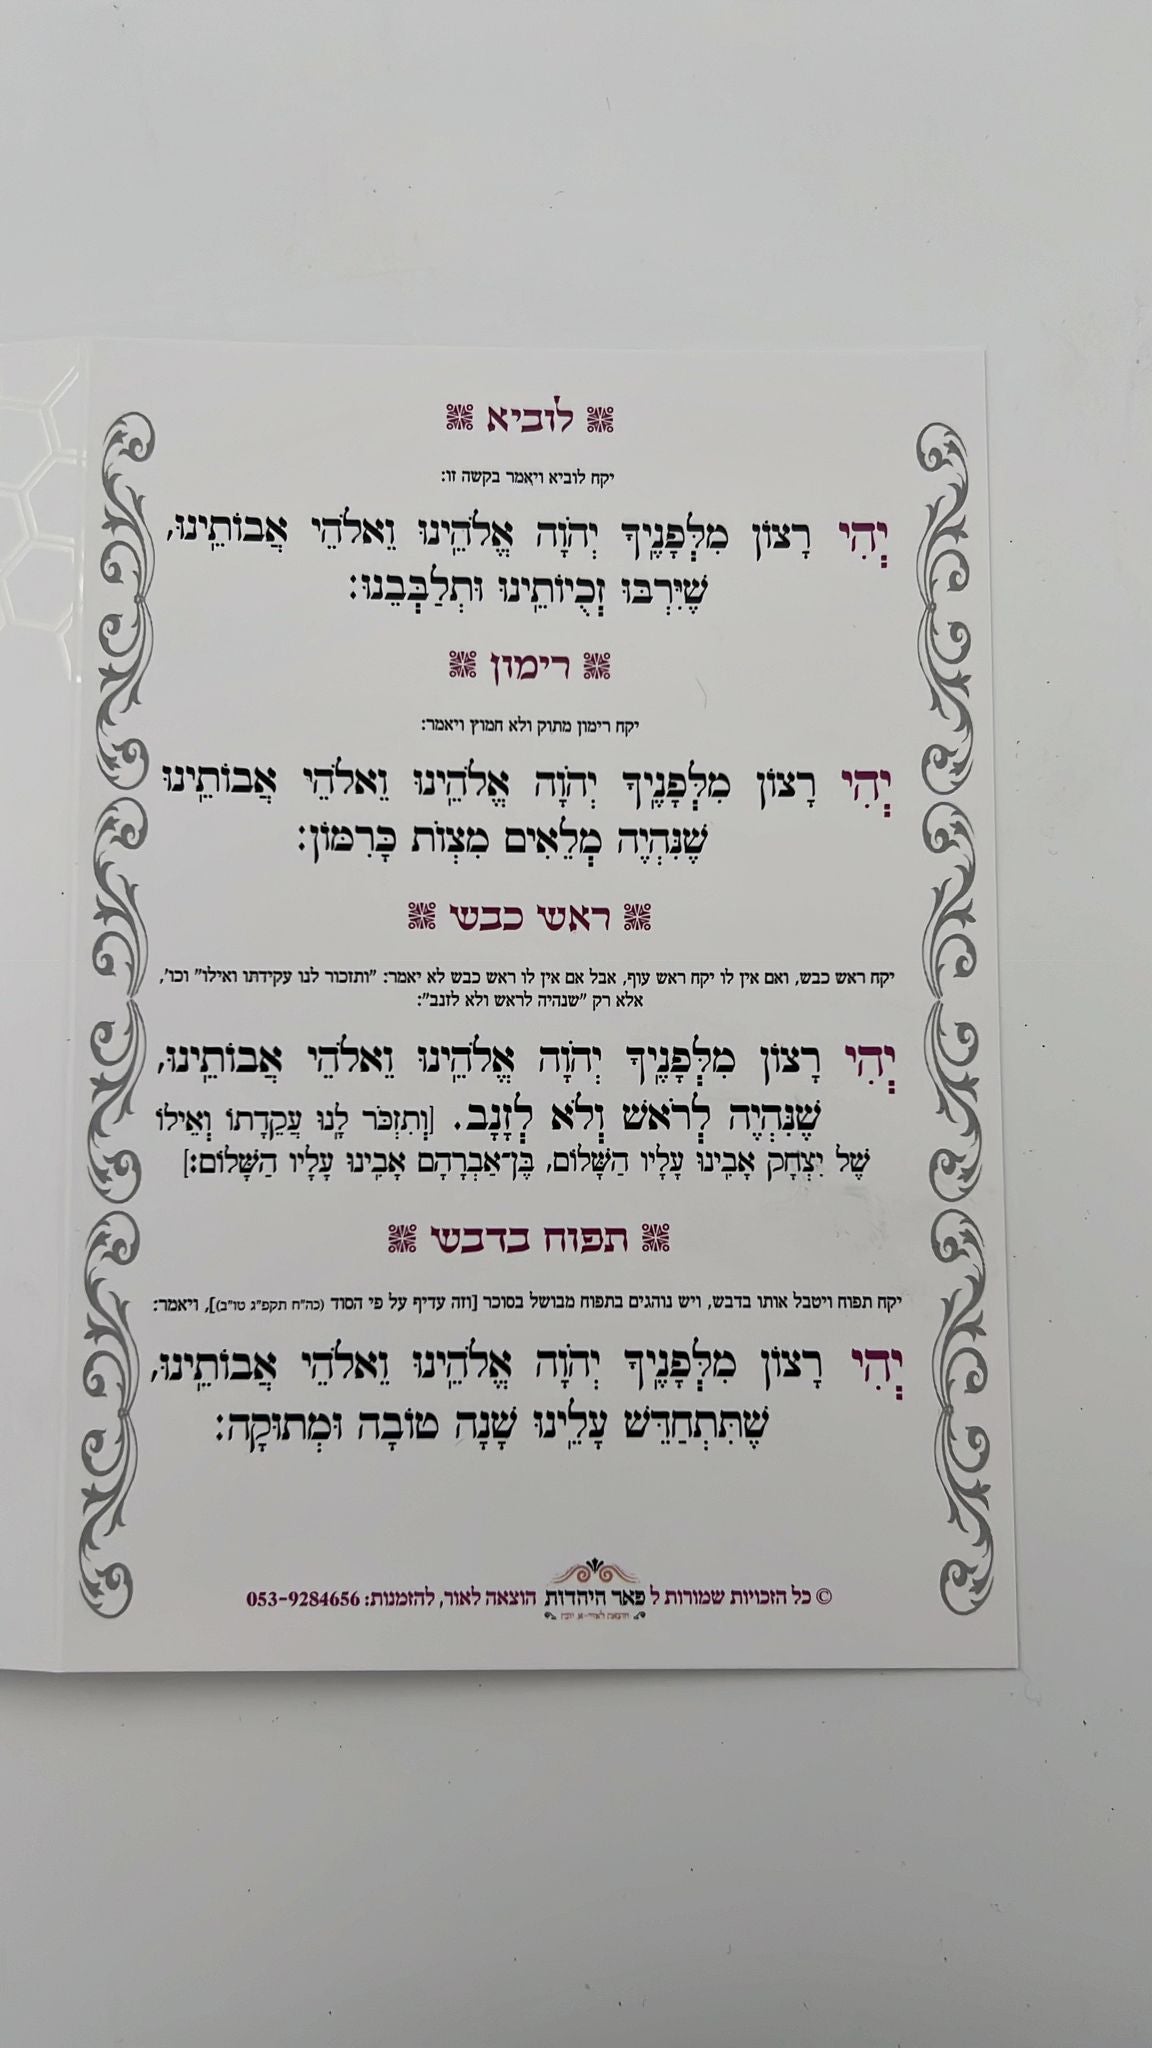 לוביא
יקח לוביא ויאמר בקשה זו:
יְהִי רָצוֹן מִלְּפָנֶיךָ יְהֹוָה אֱלֹהֵינוּ וֵאלֹהֵי אֲבוֹתֵינוּ,
שֶׁיִּרְבּוּ זְכֻיּוֹתֵינוּ וּתְלַבְּבֵנוּ:
רימון
יקח רימון מתוק ולא חמוץ ויאמר:
יְהִי רָצוֹן מִלְּפָנֶיךָ יְהֹוָה אֱלֹהֵינוּ וֵאלֹהֵי אֲבוֹתֵינוּ
שֶׁנִּהְיֶה מְלֵאִים מִצְוֹת כָּרִמּוֹן:
ראש כבש
יקח ראש כבש, ואם אין לו יקח ראש עוף, אבל אם אין לו ראש כבש לא יאמר: "ותזכור לנו עקידתו ואילו" וכו',
אלא רק "שנהיה לראש ולא לזנב":
יְהִי רָצוֹן מִלְּפָנֶיךָ יְהֹוָה אֱלֹהֵינוּ וֵאלֹהֵי אֲבוֹתֵינוּ,
שֶׁנִּהְיֶה לְרֹאשׁ וְלֹא לְזָנָב. [וְתִזְכֹּר לָנוּ עֲקֵדָתוֹ וְאֵילוֹ
שֶׁל יִצְחָק אָבִינוּ עָלָיו הַשָּׁלוֹם, בֶּן־אַבְרָהָם אָבִינוּ עָלָיו הַשָּׁלוֹם:]
תפוח בדבש
יקח תפוח ויטבל אותו בדבש, ויש נוהגים בתפוח מבושל בסוכר [וזה עדיף על פי הסוד (כה"ח תקפ"ג טו"ב)], ויאמר:
יְהִי רָצוֹן מִלְּפָנֶיךָ יְהֹוָה אֱלֹהֵינוּ וֵאלֹהֵי אֲבוֹתֵינוּ,
שֶׁתִּתְחַדֵּשׁ עָלֵינוּ שָׁנָה טוֹבָה וּמְתוּקָה:
© כל הזכויות שמורות ל פאר היהדות הוצאה לאור, להזמנות: 053-9284656